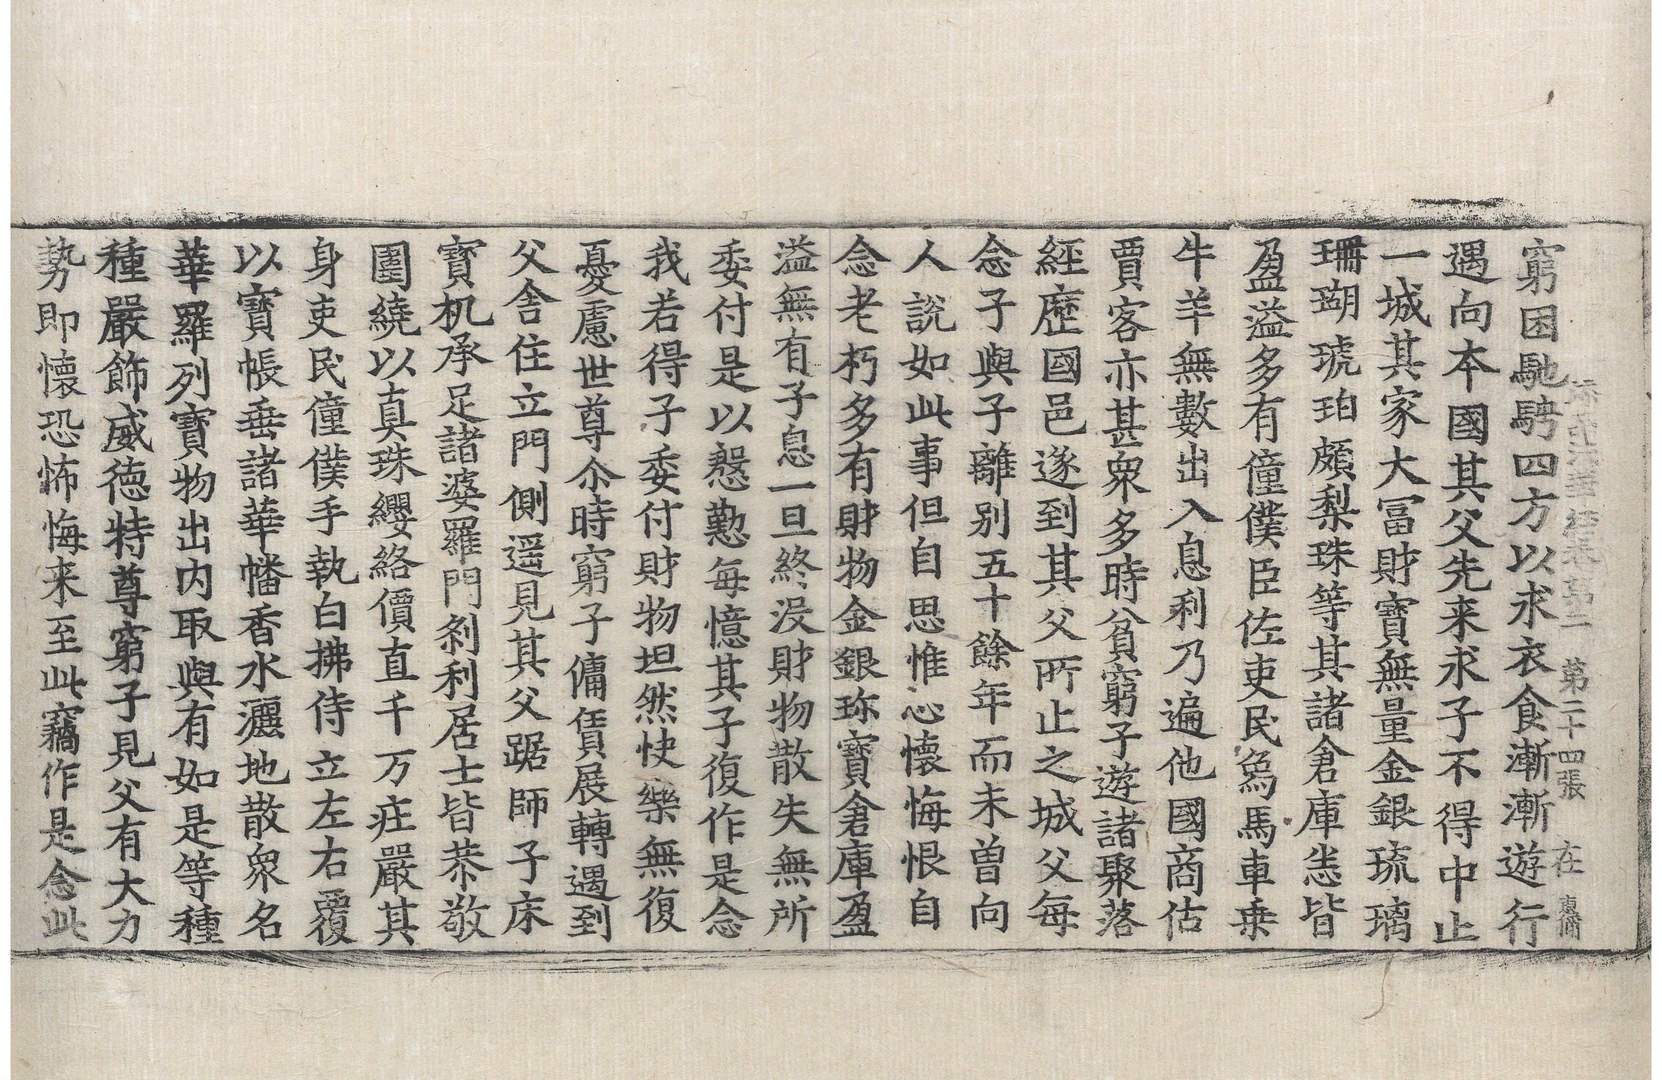 添品法華經卷第二 第二十四張 在
窮困馳騁四方以求衣食漸漸遊行
遇向本國其父先来求子不得中止
一城其家大冨財寶無量金銀琉璃
珊瑚琥珀頗梨珠等其諸倉庫悉皆
盈溢多有僮僕臣佐吏民象馬車乗
牛羊無數出入息利乃遍他國商估
賈客亦甚衆多時貧窮子遊諸聚落
經歷國邑遂到其父所止之城父每
念子與子離别五十餘年而未曽向
人說如此事但自思惟心懷悔恨自
念老朽多有財物金銀珎寶倉庫盈
溢無有子息一旦終没財物散失無所
委付是以慇懃每憶其子復作是念
我若得子委付財物坦然快樂無復
憂慮世尊尒時窮子傭賃展轉遇到
父舎住立門側遥見其父踞師子床
寳机承足諸婆羅門刹利居士皆恭敬
圍繞以真珠纓絡價直千万庄嚴其
身吏民僮僕手執白拂侍立左右覆
以寶帳垂諸華幡香水灑地散衆名
華羅列寶物出内取與有如是等種
種嚴飾威德特尊窮子見父有大力
勢即懷恐怖悔来至此竊作是念此